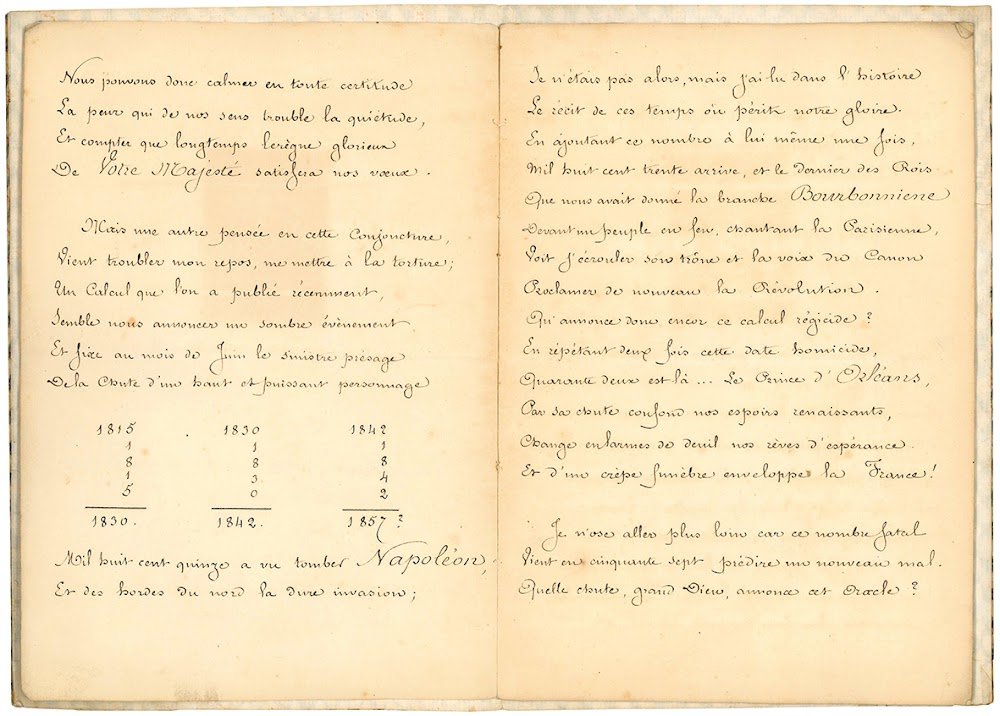 Nous pouvons donc calmer en toute certitude
La peur qui de nos sens trouble la quiétude,
Et compter que longtemps le règne glorieux
De Votre Majesté satisfera nos vœux.
Mais une autre pensée en cette Conjoncture,
Vient troubler mon repos, me mettre à la torture;
Un Calcul que l'on a publié récemment,
Semble nous annoncer un sombre évènement
Et fixe au mois de Juin le sinistre présage
De la Chute d'un haut et puissant personnage
1815 1830 1842
1 1 1
8 8 8
1 3 4
5 0 2
1830. 1842. 1857?
Mil huit cent quinze a vu tomber Napoléon,
Et des hordes du nord la dure invasion;
Je n'étais pas alors, mais j'ai lu dans l'histoire
Le récit de ces temps où périt notre gloire.
En ajoutant ce nombre à lui même une fois,
Mil huit cent trente arrive, et le dernier des Rois
Que nous avait donné la branche Bourbonniene
Devant un peuple en feu, chantant la Parisienne,
Voit s'écrouler son trône et la voix du Canon
Proclamer de nouveau la Révolution.
Qu'annonce donc encor ce calcul régicide?
En répétant deux fois cette date homicide,
Quarante deux est là ... Le Prince d'Orléans,
Par sa chute confond nos espoirs renaissants,
Change en larmes de deuil nos rêves d'espérance.
Et d'un crêpe funèbre enveloppe la France!
Je n'ose aller plus loin car ce nombre fatal
Vient en cinquante sept prédire un nouveau mal.
Quelle chute, grand Dieu, annonce cet Oracle?